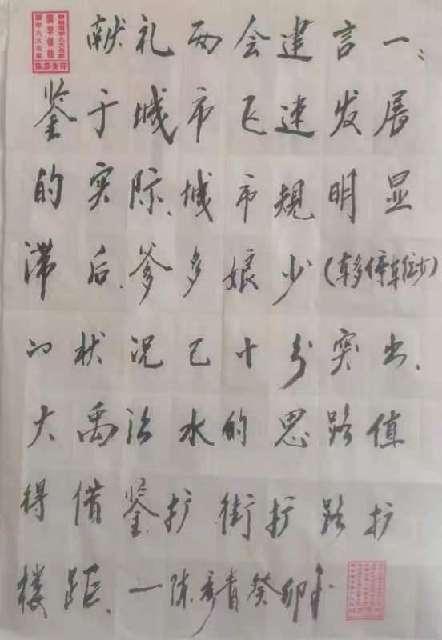 献礼两会建言一：
鉴于城市飞速发展
的实际、城市规明显
滞后、爹多娘少(车多停车位少)
的状况已十分突出、
大禹治水的思路值
得借鉴、扩街扩路扩
楼距、一陈秀青癸卯